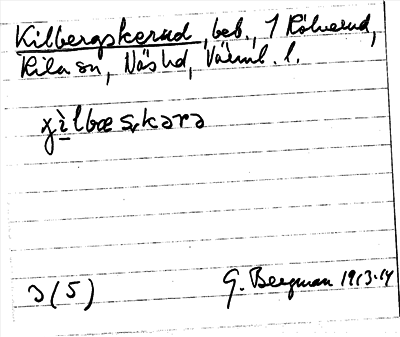 Kilbergskerud, beb., 1 Rölverud,
Kila sn, Näs hd, Värml. l.
χìlbæs,kərə
3(5) G. Bergman 1913-14